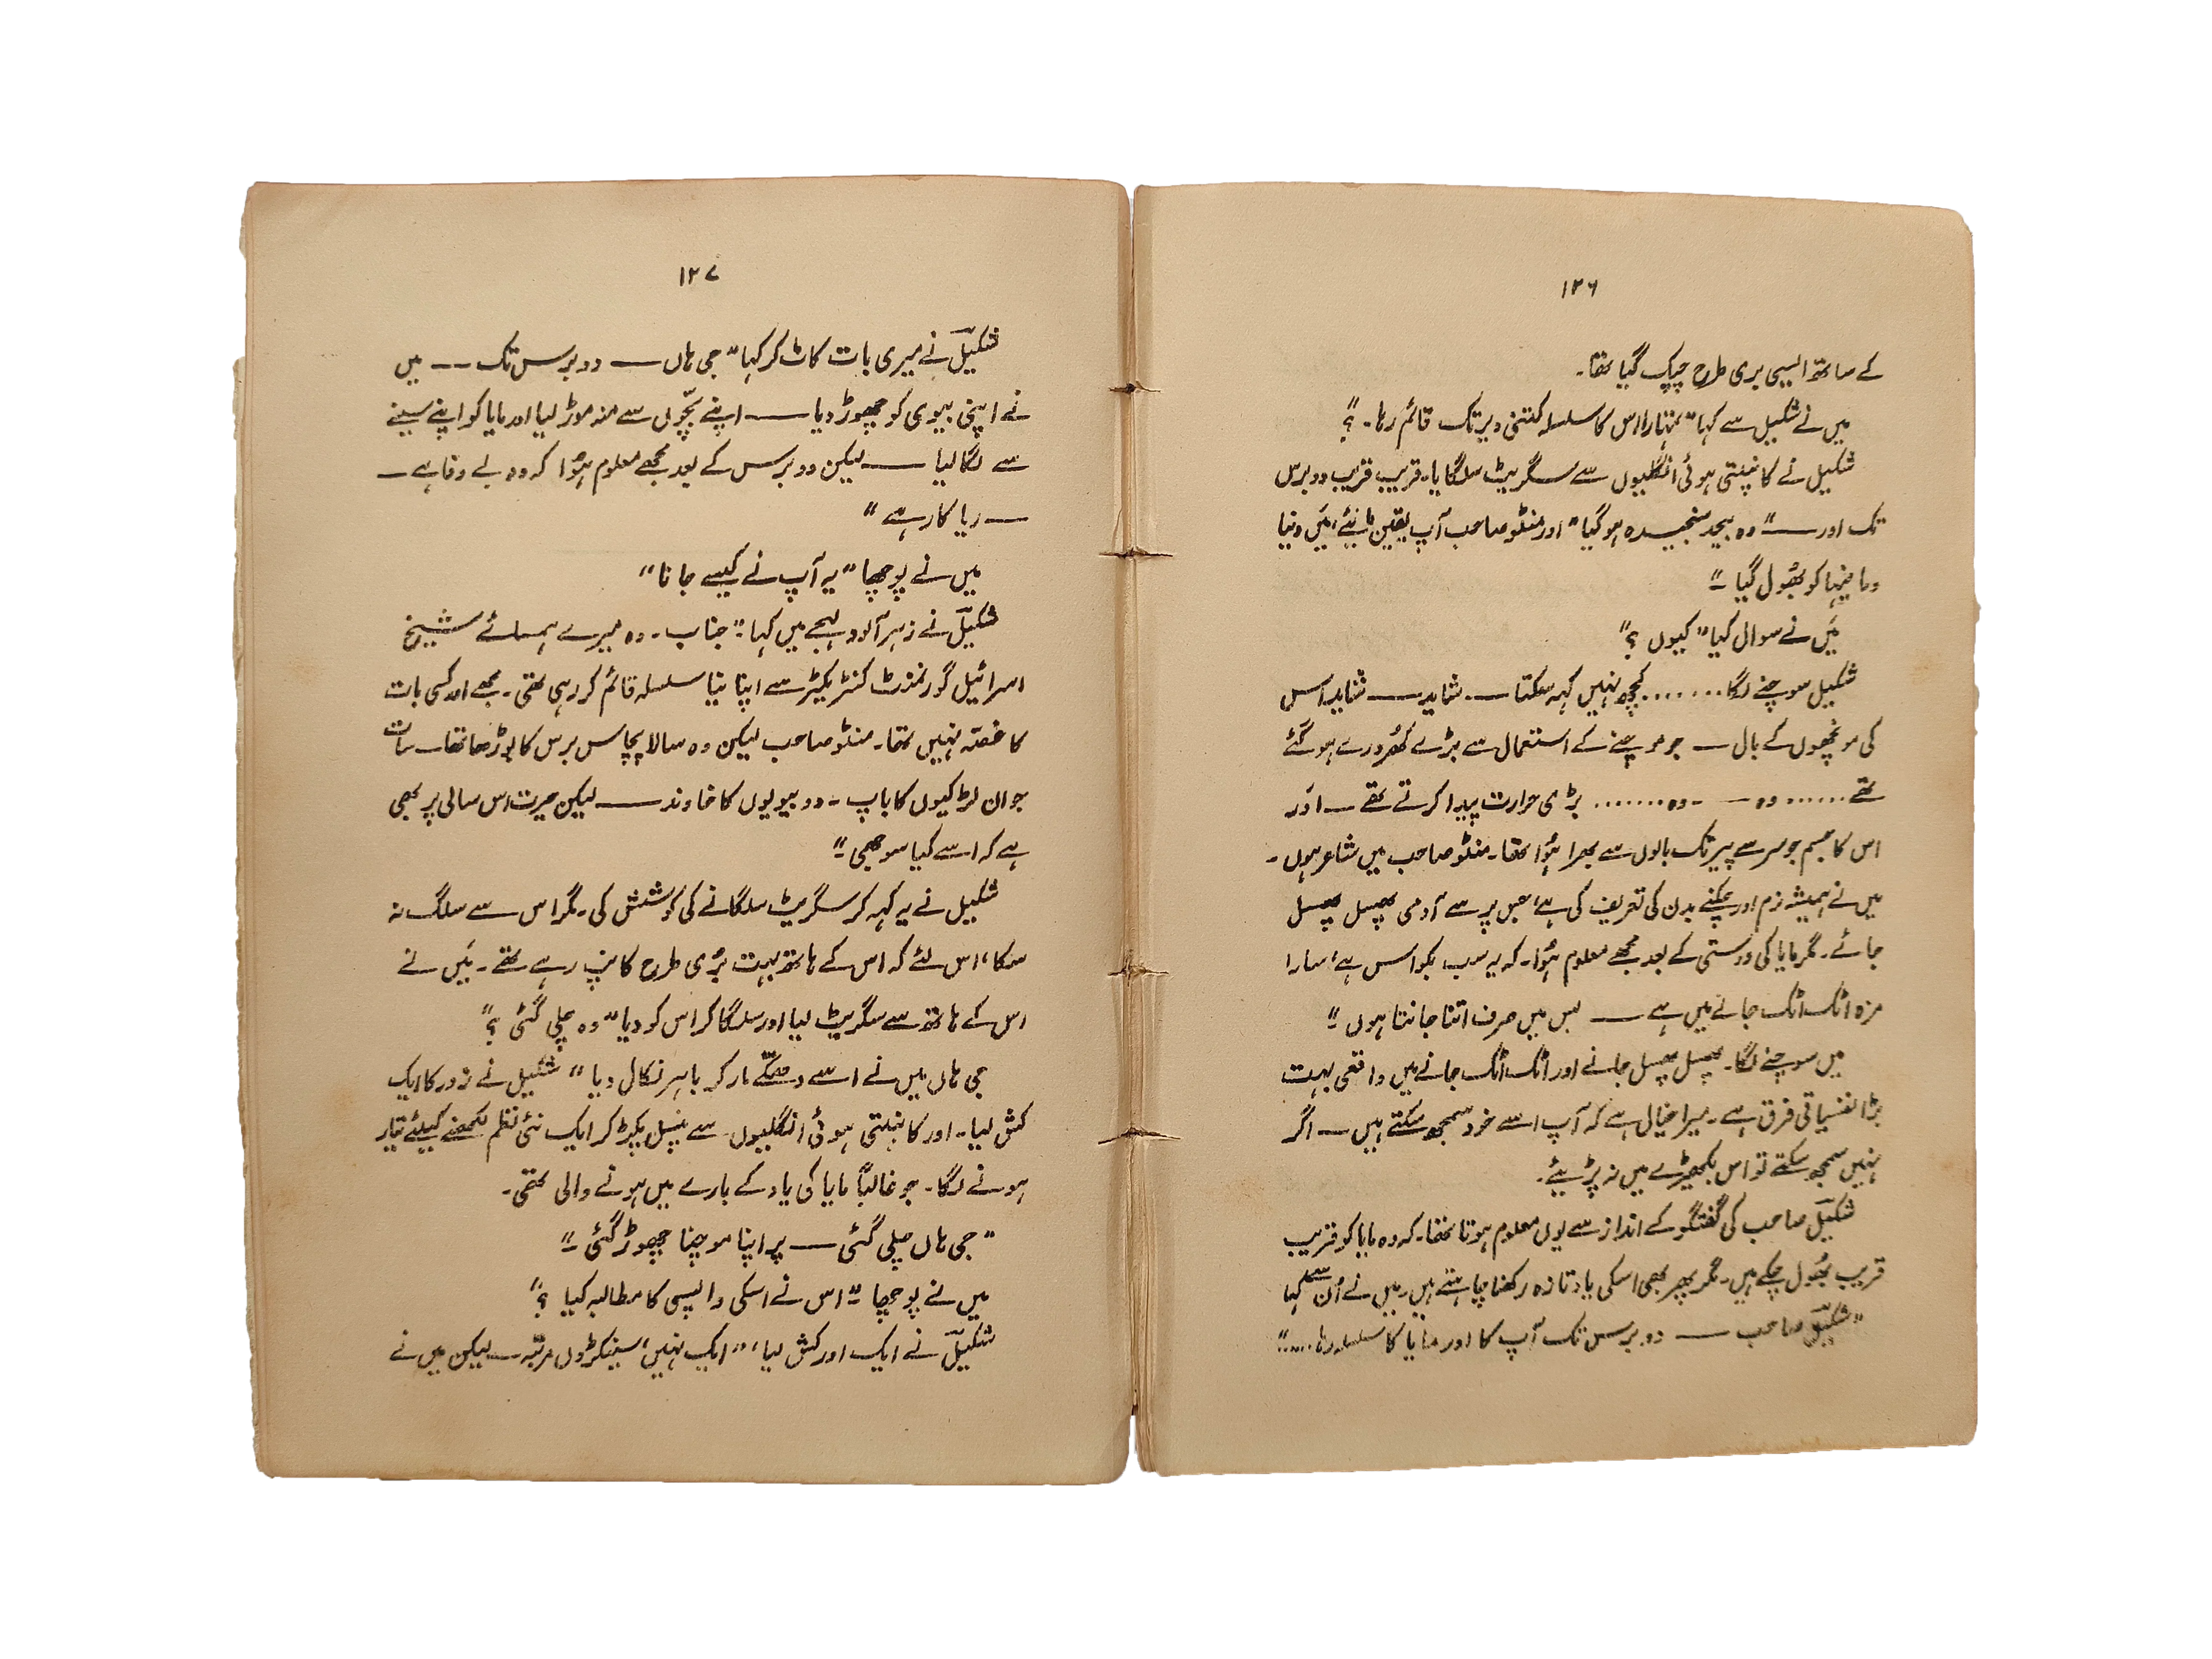 ۱۲۶
کے ساتھ ایسی بری طرح چپک گیا تھا۔
میں نے شکیل سے کہا "تمہارا اس کا سلسلہ کتنی دیر تک قائم رہا۔؟"
شکیل نے کانپتی ہوئی انگلیوں سے سگریٹ سلگایا۔ قریب قریب دو برس
تک اور ——" وہ بیحد سنجیدہ ہو گیا" اور منٹو صاحب آپ یقین مانیئے، میَں دنیا
ومافیہا کو بھُول گیا —"
میَں نے سوال کیا "کیوں ؟"
شکیل سوچنے لگا....... کچھ نہیں کہہ سکتا —۔ شاید —— شاید اس
کی مونچھوں کے بال —— جو موچنے کے استعمال سے بڑے کھُردرے ہو گئے
تھے...... وہ — ۔وہ....... بڑی حرارت پیدا کرتے تھے — اوَر
اس کا جسم جو سر سے پیر تک بالوں سے بھرا ہُوا تھا۔ منٹو صاحب میں شاعر ہوں ۔
میں نے ہمیشہ نرم اور چکنے بدن کی تعریف کی ہے، جس پر سے آدمی پھسل پھسل
جائے۔ مگر مایا کی دوستی کے بعد مجھے معلوم ہُوا۔ کہ یہ سب بکواس ہے، سارا
مزہ اٹک اٹک جانے میں ہے —— بس میں صرف اتنا جانتا ہوں —"
میں سوچنے لگا۔ پھسل پھسل جانے اور اٹک اٹک جانے میں واقعی بہت
بڑا نفسیاتی فرق ہے۔ میرا خیال ہے کہ آپ اسے خود سمجھ سکتے ہیں — اگر
نہیں سمجھ سکتے تو اس بکھیڑے میں نہ پڑیئے۔
شکیلؔ صاحب کی گفتگو کے انداز سے یوں معلوم ہوتا تھا۔ کہ وہ مایا کو قریب
قریب بھُول چکے ہیں۔ مگر پھر بھی اسکی یاد تازہ رکھنا چاہتے ہیں۔ میں نے اُن سے کہا
"شکیلؔ صاحب —— دو برس تک آپ کا اور مایا کا سلسلہ رہا....."
۱۲۷
شکیلؔ نے میری بات کاٹ کر کہا "جی ہاں —— دو برس تک —— میں
نے اپنی بیوی کو چھوڑ دیا —— اپنے بچّوں سے منہ موڑ لیا اور مایا کو اپنے سینے
سے لگا لیا —— لیکن دو برس کے بعد مجھے معلوم ہُوا کہ وہ بے وفا ہے —
—— ریا کار ہے"
میں نے پوچھا "یہ آپ نے کیسے جانا"
شکیلؔ نے زہر آلود لہجے میں کہا —" جناب۔ وہ میرے ہمسائے شیخ
اسرائیل گورنمنٹ کنٹریکٹر سے اپنا نیا سلسلہ قائم کر رہی تھی۔ مجھے اور کسی بات
کا غصّہ نہیں تھا۔ منٹو صاحب لیکن وہ سالا پچاس برس کا بوڑھا تھا — سات
جوان لڑکیوں کا باپ ۔ دو بیویوں کا خاوند —— لیکن حیرت اس سالی پر بھی
ہے کہ اسے کیا سوجھی —"
شکیل نے یہ کہہ کر سگریٹ سلگانے کی کوشش کی۔ مگر اس سے سلگ نہ
سکا، اس لئے کہ اس کے ہاتھ بہت بُری طرح کانپ رہے تھے۔ میَں نے
اس کے ہاتھ سے سگریٹ لیا اور سلگا کر اس کو دیا "وہ چلی گئی ؟"
جی ہاں میں نے اسے دھکّے مار کر باہر نکال دیا" شکیل نے زور کا ایک
کش لیا۔ اور کانپتی ہوئی انگلیوں سے پنسل پکڑ کر ایک نئی نظم لکھنے کیلئے تیار
ہونے لگا۔ جو غالباً مایا کی یاد کے بارے میں ہونے والی تھی۔
"جی ہاں چلی گئی —— پر اپنا موچنا چھوڑ گئی —"
میں نے پوچھا —" اس نے اسکی واپسی کا مطالبہ کیا ؟"
شکیلؔ نے ایک اور کش لیا، "ایک نہیں، سینکڑوں مرتبہ — لیکن میں نے